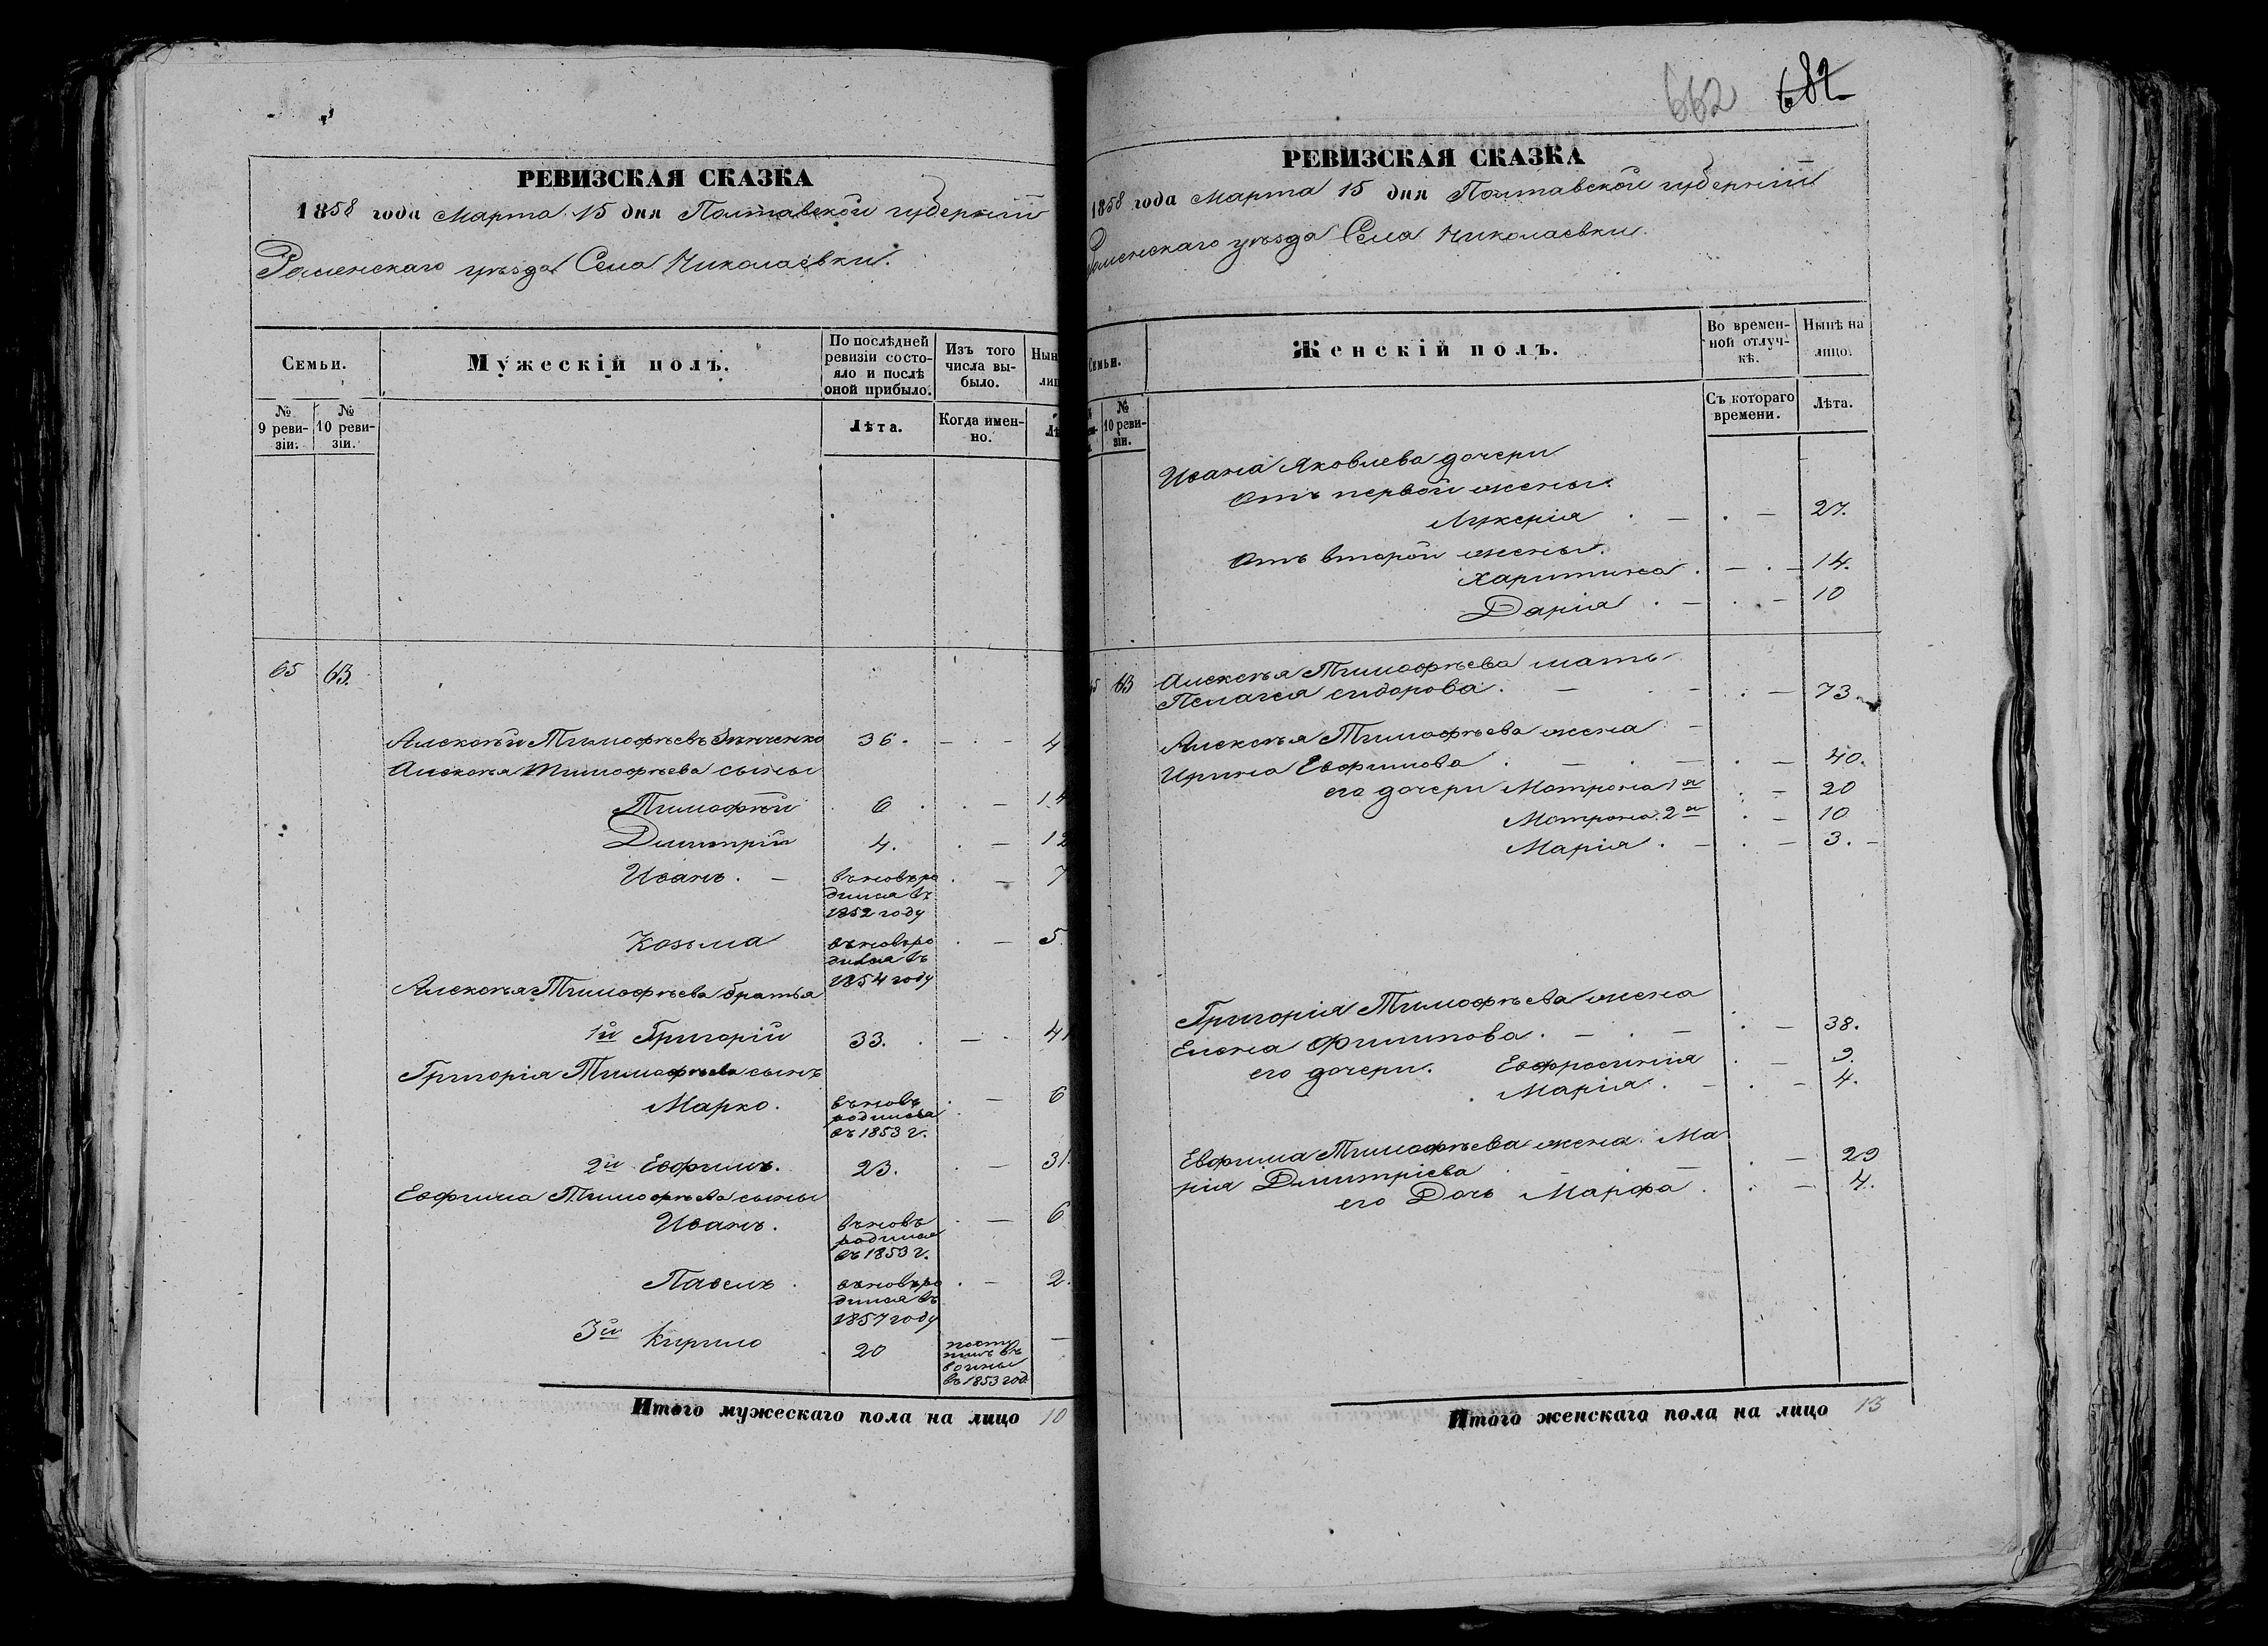 РЕВИЗСКАЯ СКАЗКА
1858 года Марта 15 дня Полтавской губернiи
Роменскаго уѣзда Села Николаевки.
Семьи.
Мужескiй полъ.
По послѣдней ревизiи состо-
яло и послѣ
оной прибыло.
Изъ того
числа вы-
было.
Нын
лиц
№
9 реви-
зiи.
№
10 реви-
зiи.
Лѣта.
Когда имен-
но.
Лѣ
65 63.
Алексѣй Тимофѣевъ 36. 4
Алексѣя Тимофѣева сыны
Тимофѣй 6 14
Димитрiй 4. 12
Иванъ. вновь ро
дился въ
1852 году 7
Козьма вновь ро
дился въ
1854 году 5.
Алексѣя Тимофѣева братья
1й Григорiй 33. 41
Григорiя Тимофѣева сынъ
Марко. вновь
родился
въ 1853 г. 6
2й Евфимъ. 23. 31.
Евфима Тимофѣева сыны
Иванъ. вновь
родился
въ 1853 г. 6
Павелъ. вновь ро
дился въ
1857 году 2.
3й Кирило 20 посту
пилъ въ
воины
въ 1853 год. —
Итого мужескаго пола на лицо 10
662 682
РЕВИЗСКАЯ СКАЗКА
1858 года Марта 15 дня Полтавской губернiи
Роменскаго уѣзда Села Николаевки.
Семьи.
№
10 реви-
зiи.
Женскiй полъ.
Во времен-
ной отлуч-
кѣ.
Нынѣ на
лицо.
Съ котораго
времени.
Лѣта.
Ивана Яковлева дочери
Отъ первой жены.
Лукерiя 27.
Отъ второй жены.
Харитина 14.
Дарiя 10
5 63 Алексѣя Тимофѣева мать
Пелагея Сидорова. 73
Алексѣя Тимофѣева жена
Ирина Евфимова 40.
его дочери Матрона 1я 20
Матрона 2я 10
Марiя. 3.
Григорiя Тимофѣева жена
Елена Филипова. 38.
его дочери. Евфросинiя 9.
Марiя. 4.
Евфима Тимофѣева жена Ма
рiя Димитрiева 29
его Дочь Марфа 4.
Итого женскаго пола на лицо 13